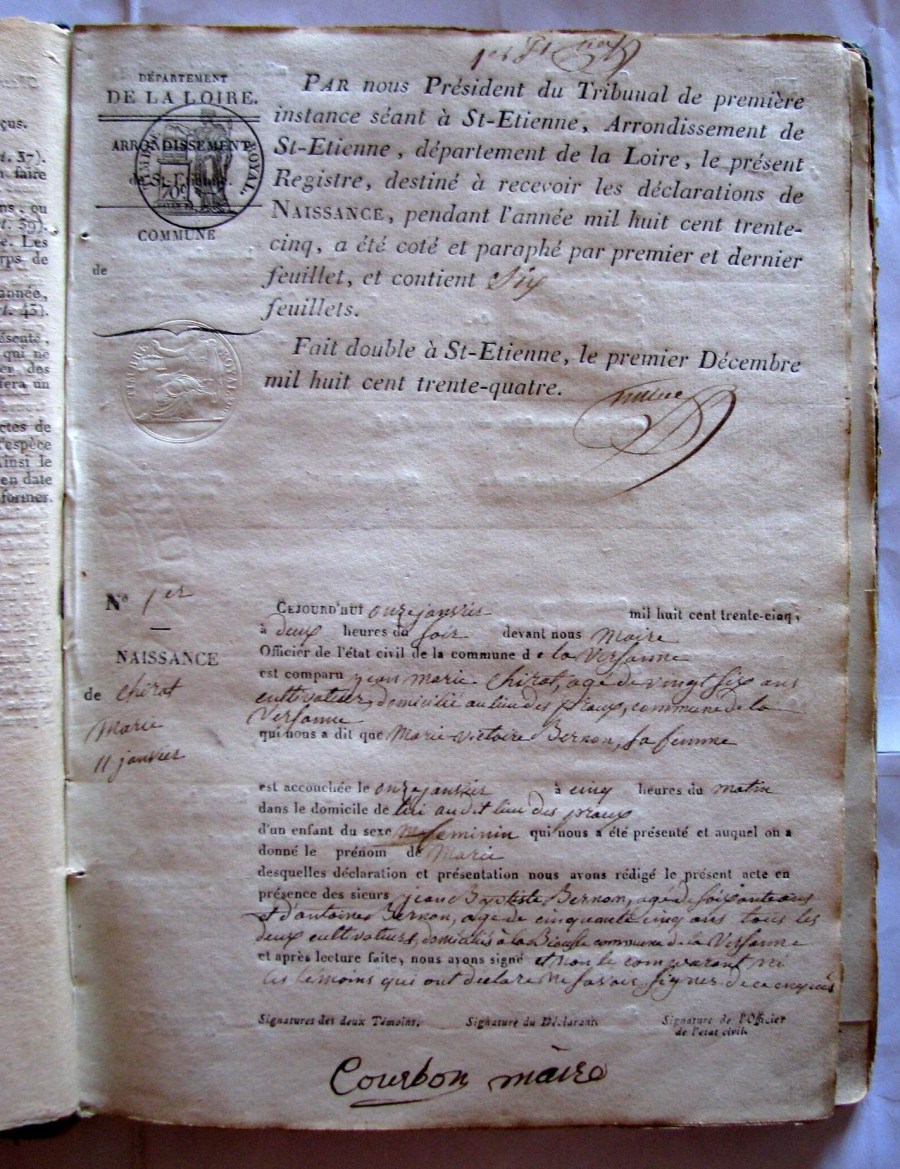 çus.
t. 37).
n faire
ns, ou
t. 59).
e. Les
rps de
année,
t. 45).
ésenté,
qui ne
er des
fera un
ctes de
l'espèce
Ainsi le
en date
former.
1er
DÉPARTEMENT
DE LA LOIRE.
ARRONDISSEMENT
de St-Etienne.
TIMBRE ROYAL
COMMUNE
de
PAR nous Président du Tribunal de première
instance séant à St-Etienne, Arrondissement de
St-Etienne, département de la Loire, le présent
Registre, destiné à recevoir les déclarations de
NAISSANCE, pendant l'année mil huit cent trente-
cinq, a été coté et paraphé par premier et dernier
feuillet, et contient Six
feuillets.
Fait double à St-Etienne, le premier Décembre
mil huit cent trente-quatre.
No 1er
NAISSANCE
de chirat
Marie
11 janvier
CEJOURD'HUI onze janvier mil huit cent trente-cinq,
à deux heures du soir devant nous Maire
Officier de l'état civil de la commune de la Versanne
est comparu jean marie chirat, agé de vingt six ans
cultivateur, domicilié au lieu des praux, commune de la
Versanne
qui nous a dit que Marie victoire Bernon, sa femme
est accouchée le onze janvier à cinq heures du matin
dans le domicile de lui audit lieu des praux
d'un enfant du sexe feminin qui nous a été présenté et auquel on a
donné le prénom de Marie
desquelles déclaration et présentation nous avons rédigé le présent acte en
présence des sieurs jean Baptiste Bernon, agé de soixante ans
et d'antoine Bernon, agé de cinquante cinq ans tous les
deux cultivateurs, domiciliés à la commune de la Versanne
et après lecture faite, nous avons signé et non le comparant ni
les témoins qui ont déclaré ne savoir signer de ce enquis
Signatures des deux Témoins. Signature du Déclarant Signature de l'Officier
de l'état civil.
Courbon maire